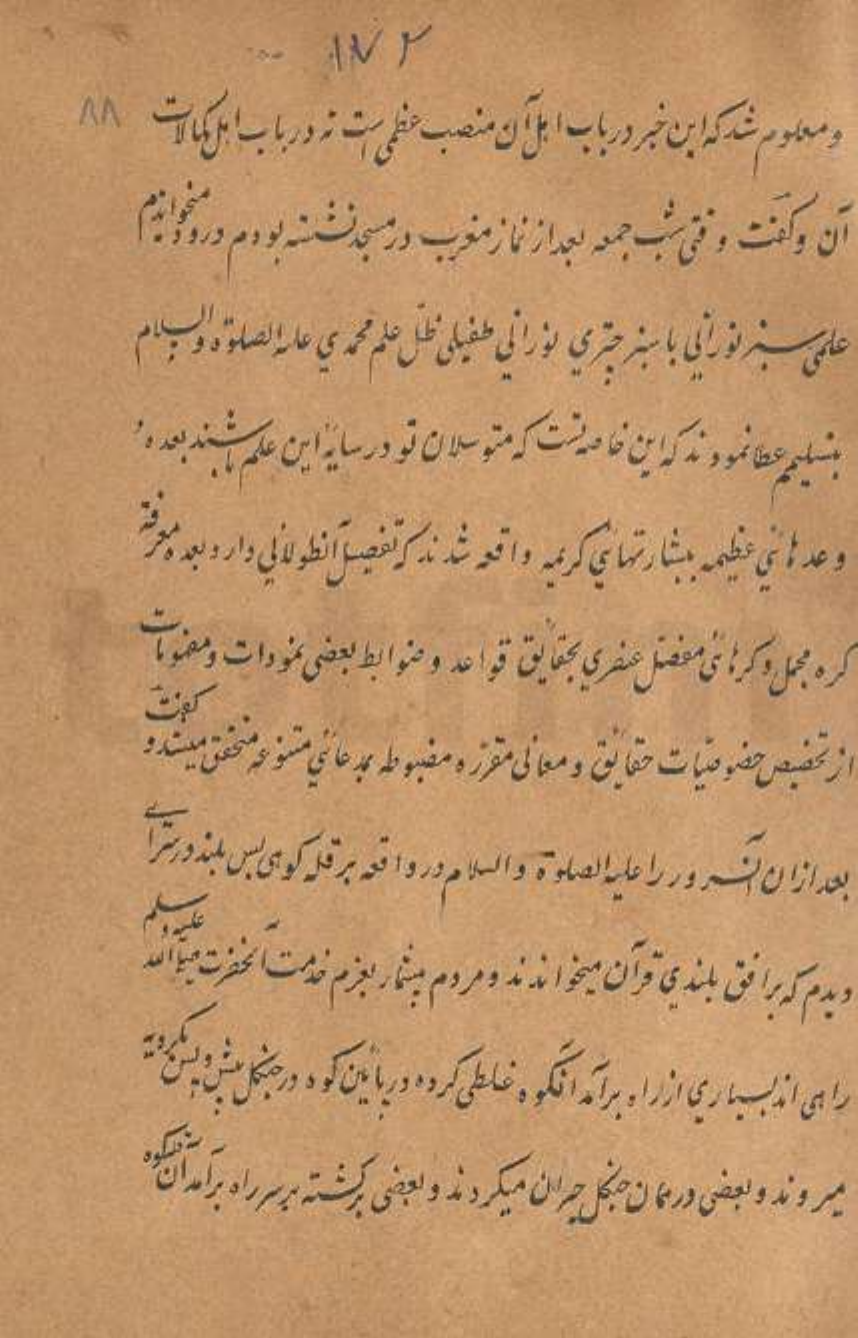 ۱۷۲
۸۸
و معلوم شد که این خبر در باب اهل آن منصب عظمی است نه در باب اهل کمالات
آن و گفت وقتی شب جمعه بعد از نماز مغرب در مسجد نشسته بودم درود میخواندم
علمی سبز نورانی با سبز چتری نورانی طفیلی ظلّ علم محمدی علیه الصلوة والسلام
بتسلیمم عطا نمودند که این خاصه تست که متوسلان تو در سایهٔ این علم باشند بعده
وعدهائی عظیمه ببشارتهائی کریمه واقعه شدند که تفصیل آن طولانی دارد و بعد معرفة
کره مجمل و کرهائی مفصّل عنصری بحقایق قواعد و ضوابط بعضی نمودات و مفهومات
از تخصیص خصوصیّات حقایق و معانی مقرّره مضبوطه بمدعائی متنوعه متحقق میشد و گفت
بعد ازان آنسرور را علیه الصلوة والسلام در واقعه بر قله کوهی بس بلند در
دیدم که بر افق بلندی قرآن میخواندند و مردم بیشمار بعزم خدمت آنحضرت صلی الله علیه وسلم
راهی اند بسیاری از راه برآمد آنکوه غلطی کرده در پائین کوه در جنگل پیش و پس
میروند و بعضی درهمان جنگل حیران میگردند و بعضی برگشته بر سر راه برآمد آن